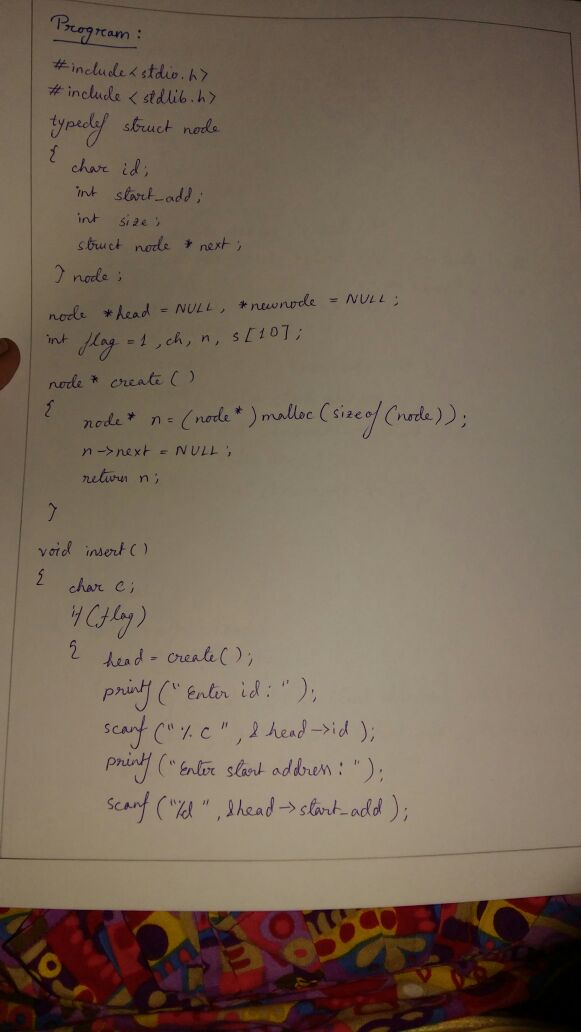 Program :
#include<stdio.h>
# include <stdlib.h>
typedef struct node
{
char id;
int start_add;
int size;
struct node * next;
} node ;
node *head = NULL, *newnode = NULL ;
int flag = 1 , ch, n, s[10];
node * create ( )
{
node* n = (node*) malloc (sizeof (node));
n->next = NULL ;
return n;
}
void insert ( )
{
char c;
if (flag)
{
head = create ( );
printf (" Enter id : " );
scanf (" % c " , & head ->id );
printf (" Enter start address : " );
scanf ("%d " , &head -> start_add );